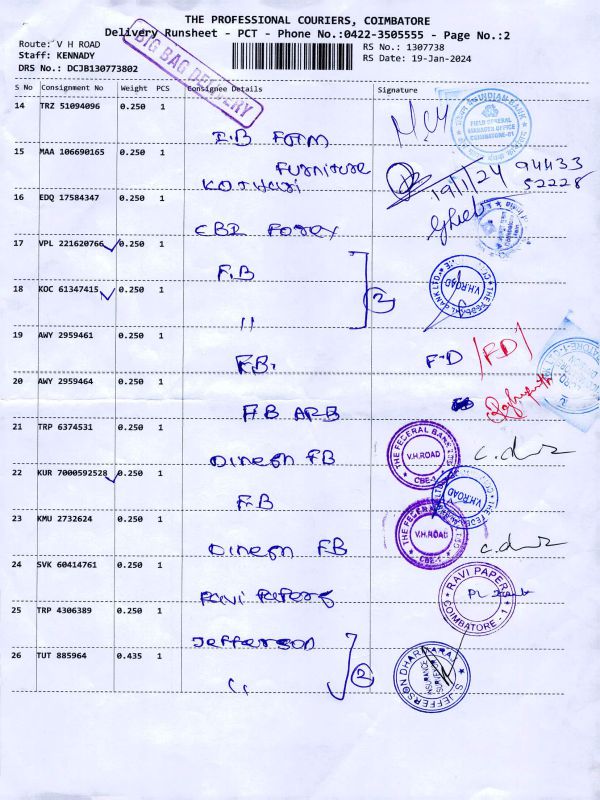 THE PROFESSIONAL COURIERS, COIMBATORE
Delivery Runsheet - PCT - Phone No.:0422-3505555 - Page No.:2
Route: V H ROAD
RS No.: 1307738
Staff: KENNADY
RS Date: 19-Jan-2024
DRS No.: DCJB130773802
BIG BAG DELIVERY
S No Consignment No Weight PCS Consignee Details Signature
14 TRZ 51094096 0.250 1
I.B FORM
INDIAN BANK
FIELD GENERAL
MANAGER OFFICE
COIMBATORE-01
15 MAA 106690165 0.250 1
Furniture
Kothari
19/1/24 94433
52228
16 EDQ 17584347 0.250 1
CBE Forex
17 VPL 221620766 0.250 1
F.B
18 KOC 61347415 0.250 1
"
2
THE FEDERAL BANK LTD.
V.H.ROAD
19 AWY 2959461 0.250 1
F.B.
F-D (FD)
20 AWY 2959464 0.250 1
F.B ARB
21 TRP 6374531 0.250 1
Dinesh FB
THE FEDERAL BANK LTD.
V.H.ROAD
CBE-1
22 KUR 7000592528 0.250 1
F.B
V.H.ROAD
23 KMU 2732624 0.250 1
Dinesh FB
THE FEDERAL BANK LTD
V.H.ROAD
CBE-1
24 SVK 60414761 0.250 1
Ravi Papers
RAVI PAPER
COIMBATORE - 1
25 TRP 4306389 0.250 1
Jefferson
26 TUT 885964 0.435 1
"
2
S. JEFFERSON DHARMARAJ
INSURANCE
SURVEYOR